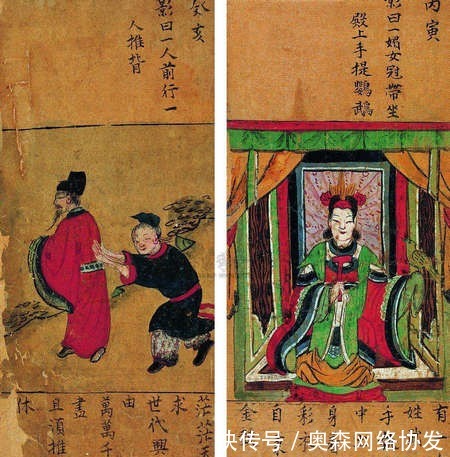 癸亥
影曰一人前行一
人推背
茫茫天
求
世代興
由
萬萬千
盡
且須推
休
丙寅
影曰一媚女冠帶坐
殿上手提鸚鵡
有
姓
手
中
身
彩
自
金
快传号 / 奥森网络协发